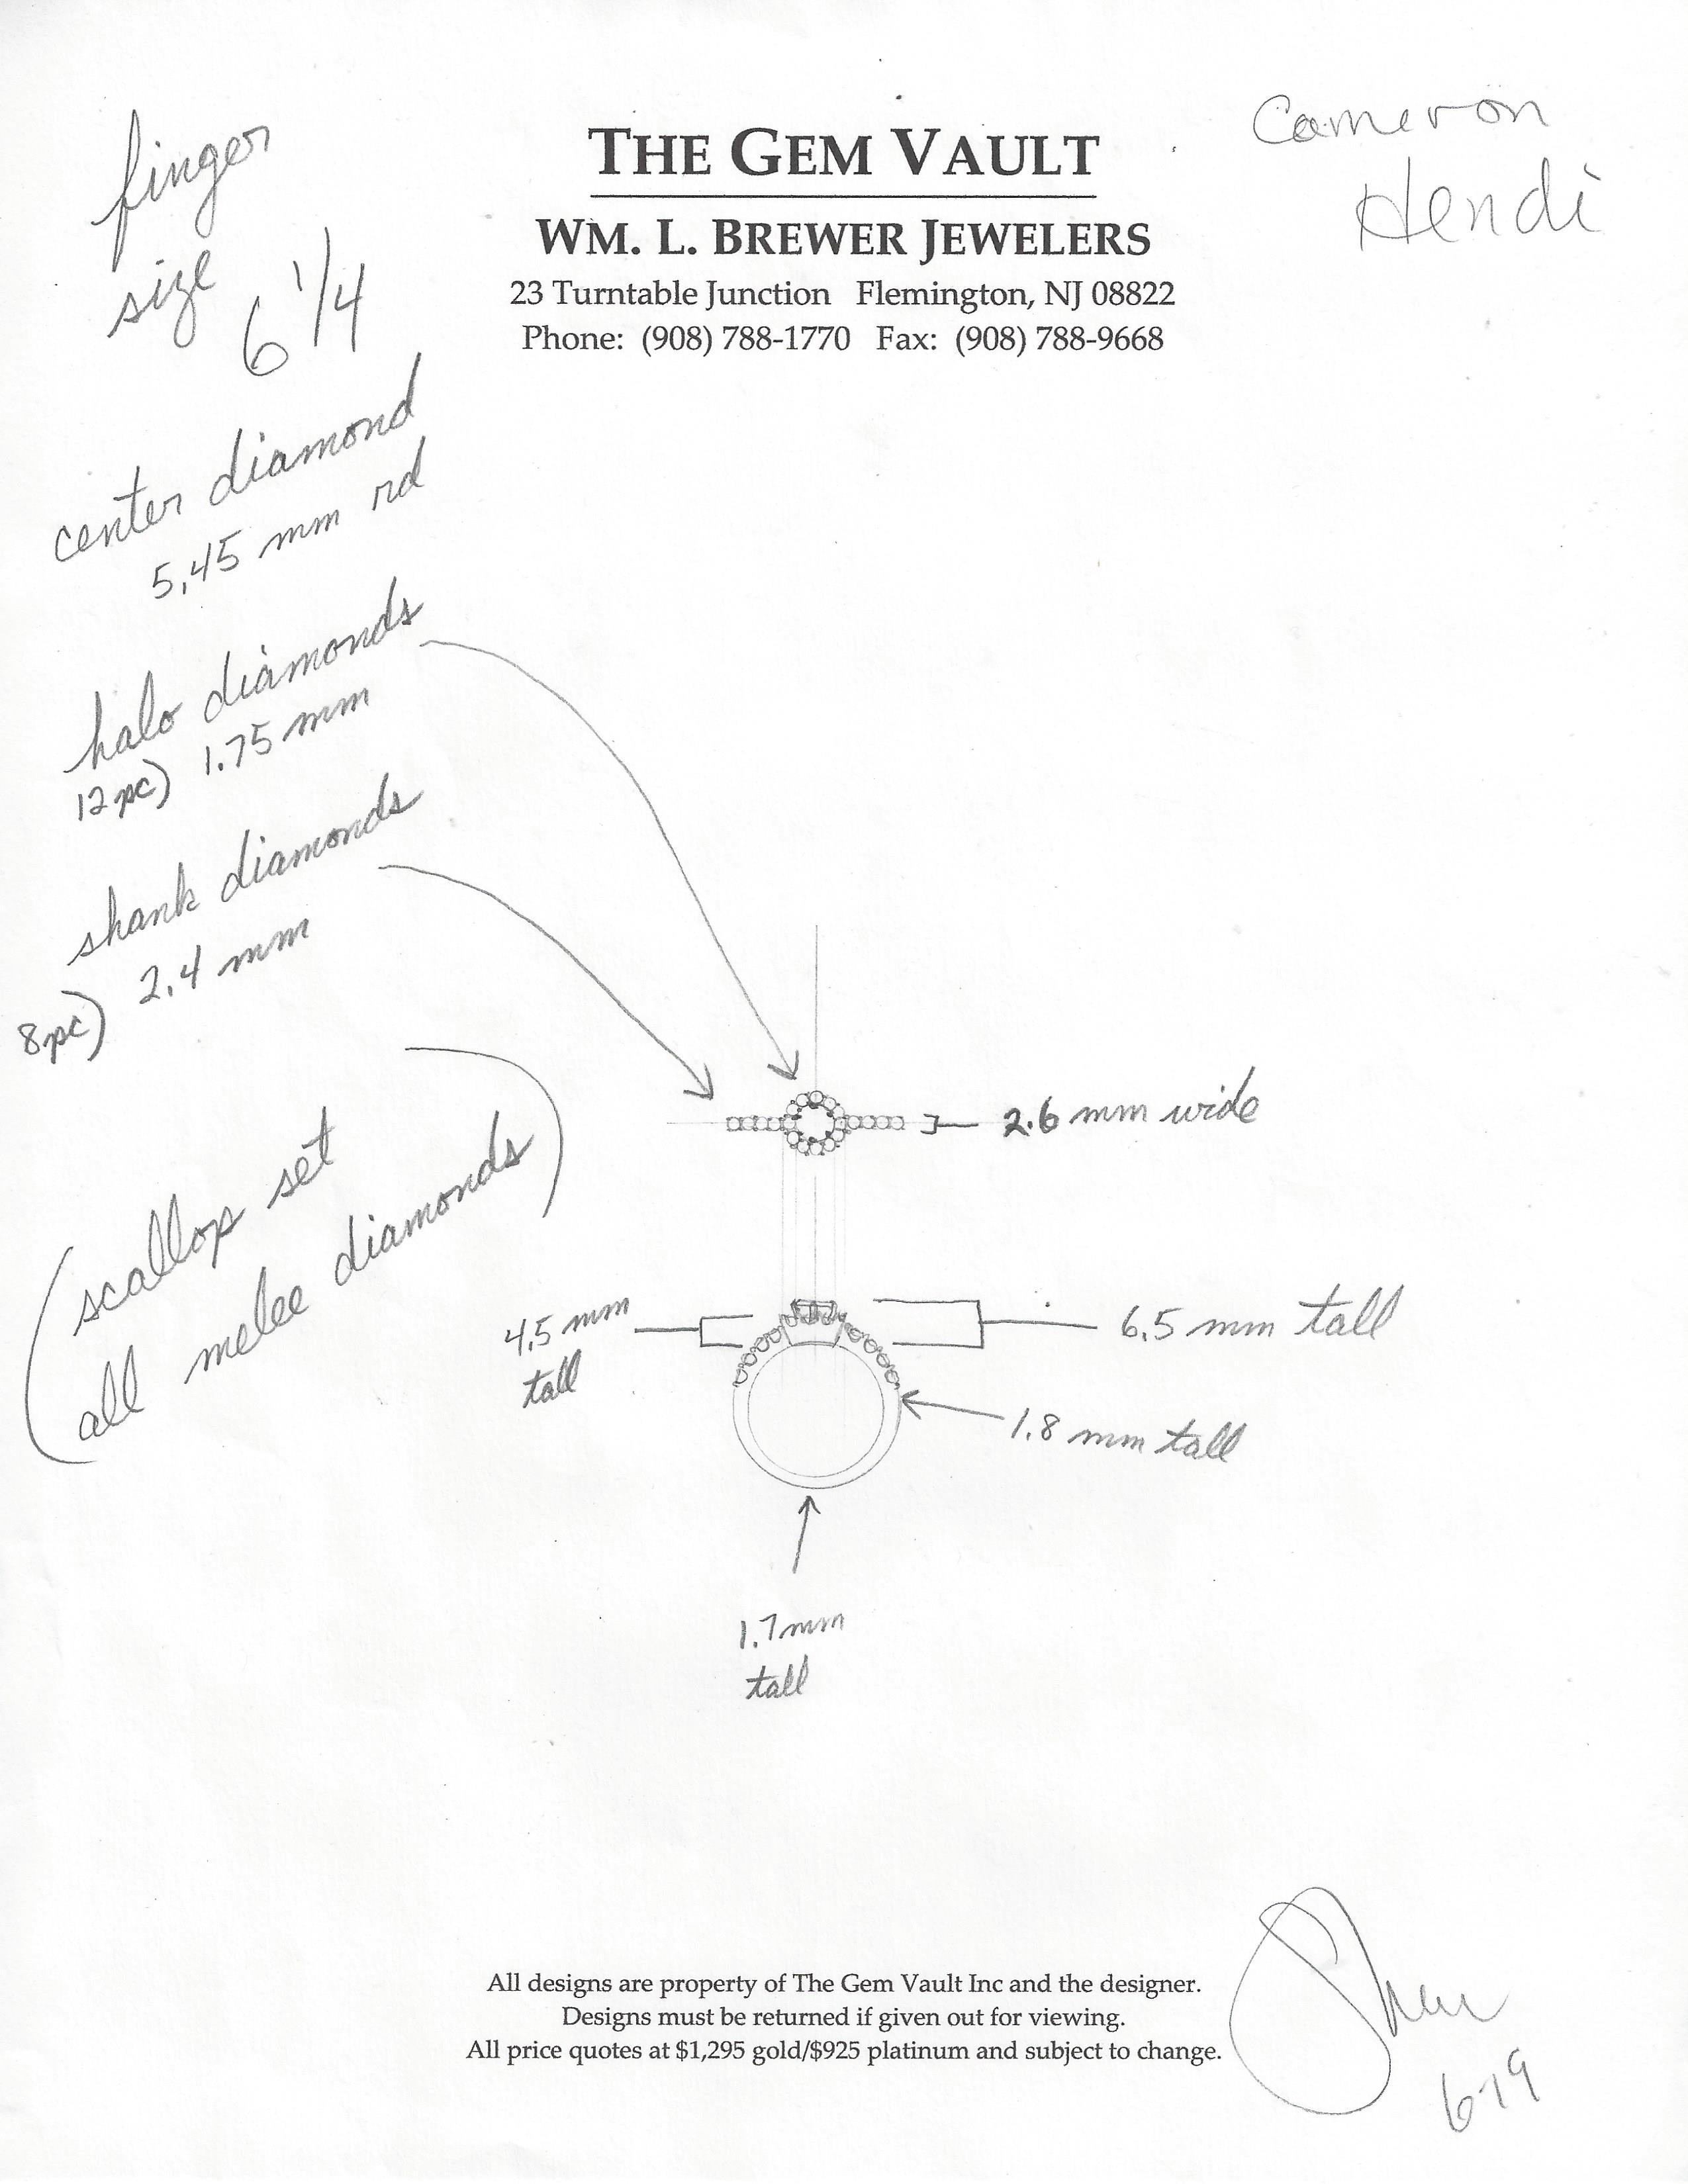 finger
size
6 1/4
THE GEM VAULT
WM. L. BREWER JEWELERS
23 Turntable Junction Flemington, NJ 08822
Phone: (908) 788-1770 Fax: (908) 788-9668
Cameron
Hendi
center diamond
5.45 mm rd
halo diamonds
12pc) 1.75 mm
shank diamonds
8pc) 2.4 mm
(scallop set
all melee diamonds)
2.6 mm wide
4.5 mm
tall
6.5 mm tall
1.8 mm tall
1.7mm
tall
All designs are property of The Gem Vault Inc and the designer.
Designs must be returned if given out for viewing.
All price quotes at $1,295 gold/$925 platinum and subject to change.
6-19